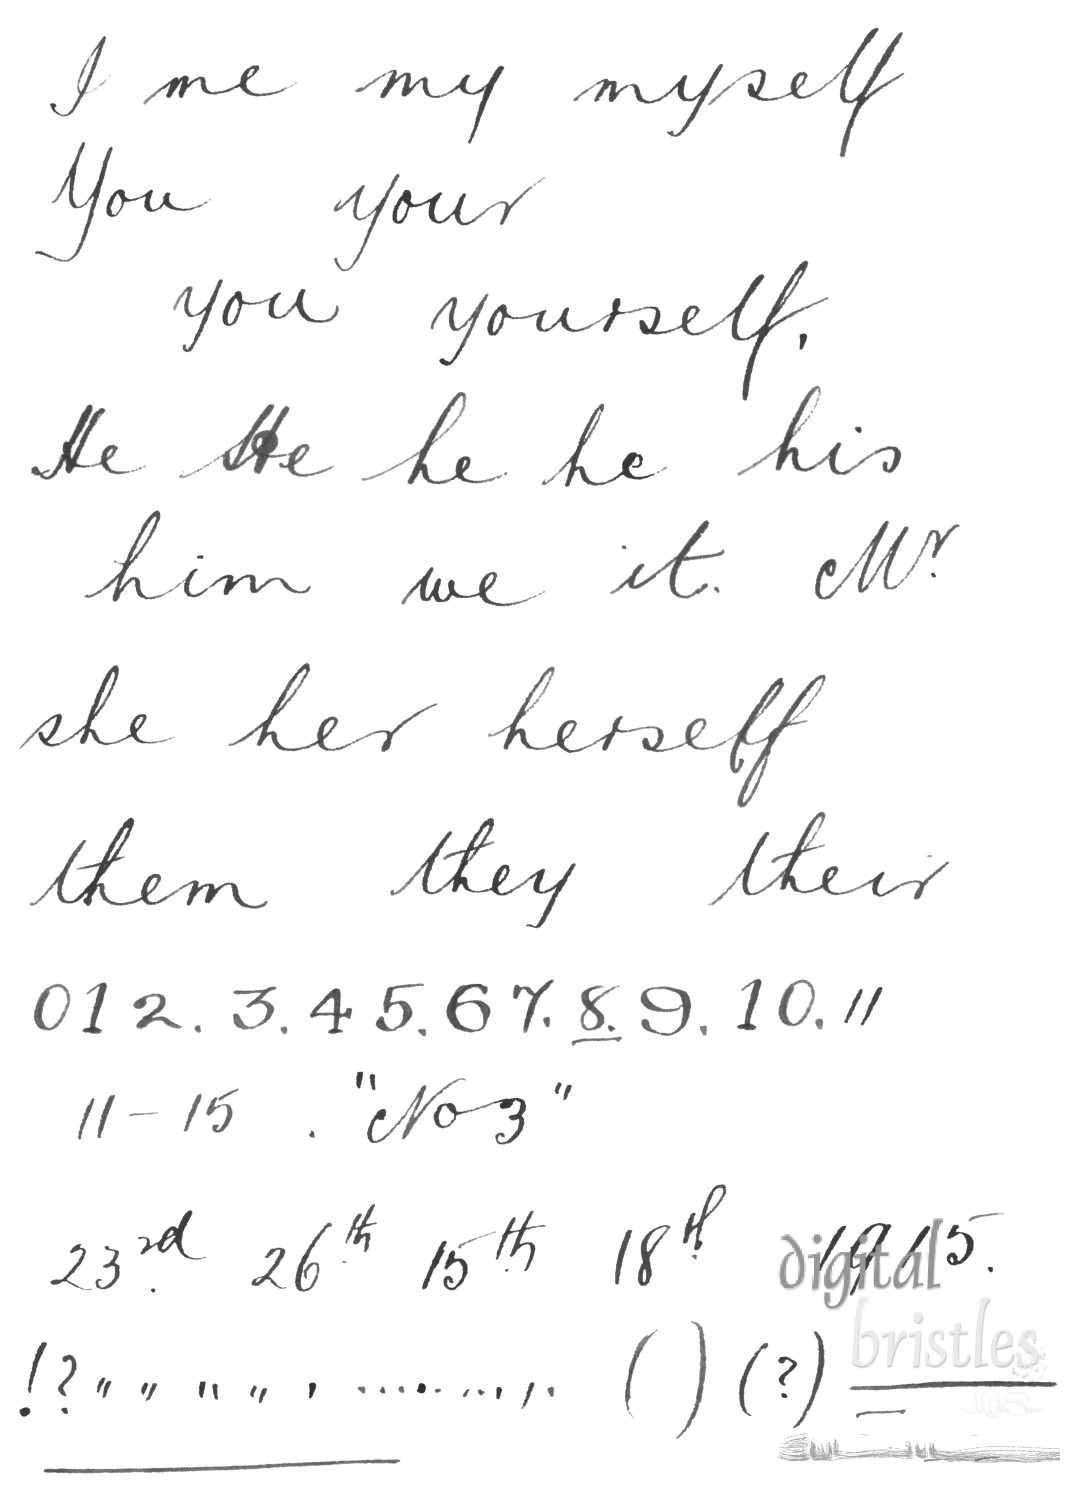 I me my myself
You your
you yourself,
He He he he his
him we it. Mr.
she her herself
them they their
0 1 2. 3. 4 5. 6 7. 8. 9. 10. 11
11 – 15 . "No 3"
23rd 26th 15th 18th 1915.
digital
! ? " " " " , ........., . ( ) (?)
bristles